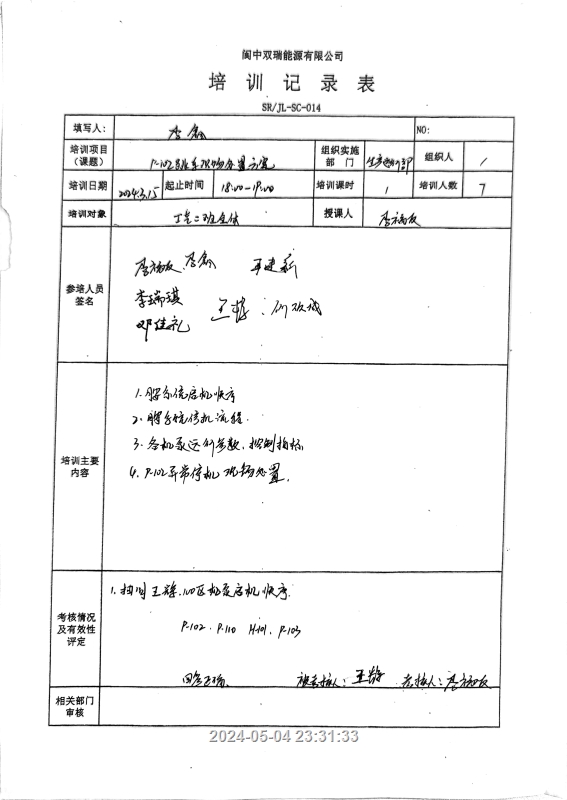 阆中双瑞能源有限公司
培训记录表
SR/JL-SC-014
填写人： 李鑫 NO:
培训项目（课题） P-102异常现场处置方案 组织实施部门 生产部 组织人 /
培训日期 2024.3.15 起止时间 18:00-19:00 培训课时 1 培训人数 7
培训对象 工艺二班全体 授课人
参培人员签名 李鑫 王建新
李瑞琪 王静
邓佳礼
培训主要内容
1. 脱汞系统启机顺序
2. 系统停机流程.
3. 各机泵运行参数、控制指标
4. P-102异常停机现场处置.
考核情况及有效性评定
1. 抽问 100区机泵启机顺序.
P-102. P-110 H-101. P-103
回答正确. 被考核人：王静 考核人：
相关部门审核
2024-05-04 23:31:33